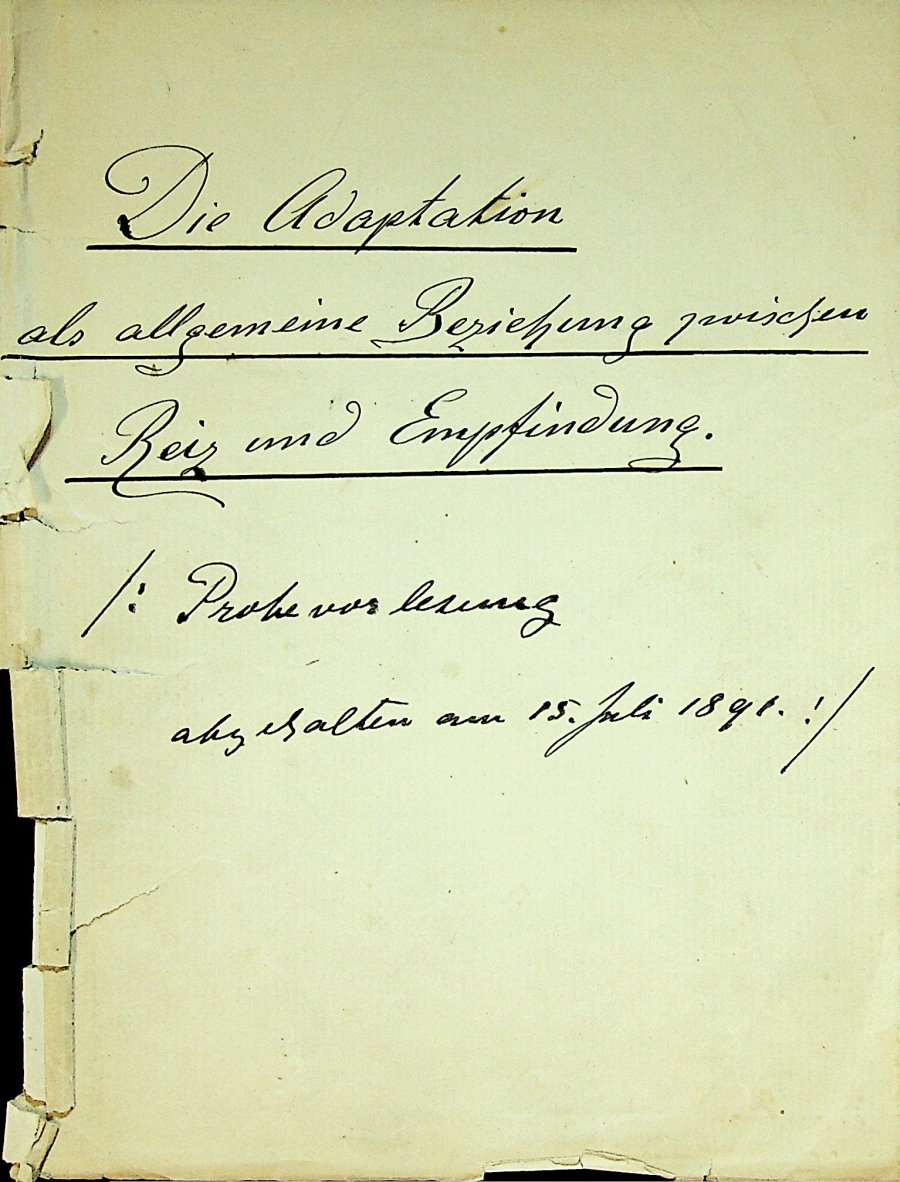 Die Adaptation
als allgemeine Beziehung zwischen
Reiz und Empfindung.
/: Probevorlesung
abgehalten am 15. Juli 1891. :/